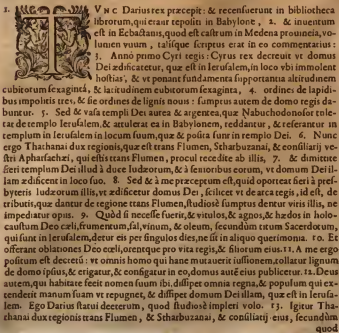 1. TVNC Darius rex præcepit: & recensuerunt in bibliotheca
librorum, qui erant repositi in Babylone, 2. & inuentum
est in Ecbatanis, quod est castrum in Medena prouincia, vo-
lumen vnum, talisque scriptus erat in eo commentarius:
3. Anno primo Cyri regis: Cyrus rex decreuit vt domus
Dei ædificaretur, quæ est in Ierusalem, in loco vbi immolent
hostias, & vt ponant fundamenta supportantia altitudinem
cubitorum sexaginta, & latitudinem cubitorum sexaginta, 4. ordines de lapidi-
bus impolitis tres, & sic ordines de lignis nouis: sumptus autem de domo regis da-
buntur. 5. Sed & vasa templi Dei aurea & argentea, quæ Nabuchodonosor tule-
rat de templo Ierusalem, & attulerat ea in Babylonem, reddantur, & referantur in
templum in Ierusalem in locum suum, quæ & posita sunt in templo Dei. 6. Nunc
ergo Thathanai dux regionis, quæ est trans Flumen, Stharbuzanai, & consiliarij ve-
stri Apharsachæi, qui estis trans Flumen, procul recedite ab illis, 7. & dimittite
fieri templum Dei illud à duce Iudæorum, & à senioribus eorum, vt domum Dei il-
lam ædificent in loco suo. 8. Sed & à me præceptum est, quid oporteat fieri à pres-
byteris Iudæorum illis, vt ædificetur domus Dei, scilicet vt de arca regis, id est, de
tributis, quæ dantur de regione trans Flumen, studiosè sumptus dentur viris illis, ne
impediatur opus. 9. Quòd si necesse fuerit, & vitulos, & agnos, & hædos in holo-
caustum Deo cæli, frumentum, sal, vinum, & oleum, secundùm ritum Sacerdotum,
qui sunt in Ierusalem, detur eis per singulos dies, ne sit in aliquo querimonia. 10. Et
offerant oblationes Deo cæli, orentque pro vita regis, & filiorum eius. 11. A me ergo
positum est decretũ: vt omnis homo qui hanc mutauerit iussionem, tollatur lignum
de domo ipsius, & erigatur, & configatur in eo, domus autẽ eius publicetur. 12. Deus
autem, qui habitare fecit nomen suum ibi, dissipet omnia regna, & populum qui ex-
tenderit manum suam vt repugnet, & dissipet domum Dei illam, quæ est in Ierusa-
lem. Ego Darius statui decretum, quod studiosè impleri volo. 13. Igitur Tha-
thanai dux regionis trans Flumen, & Stharbuzanai, & consiliarij eius, secundùm
quod